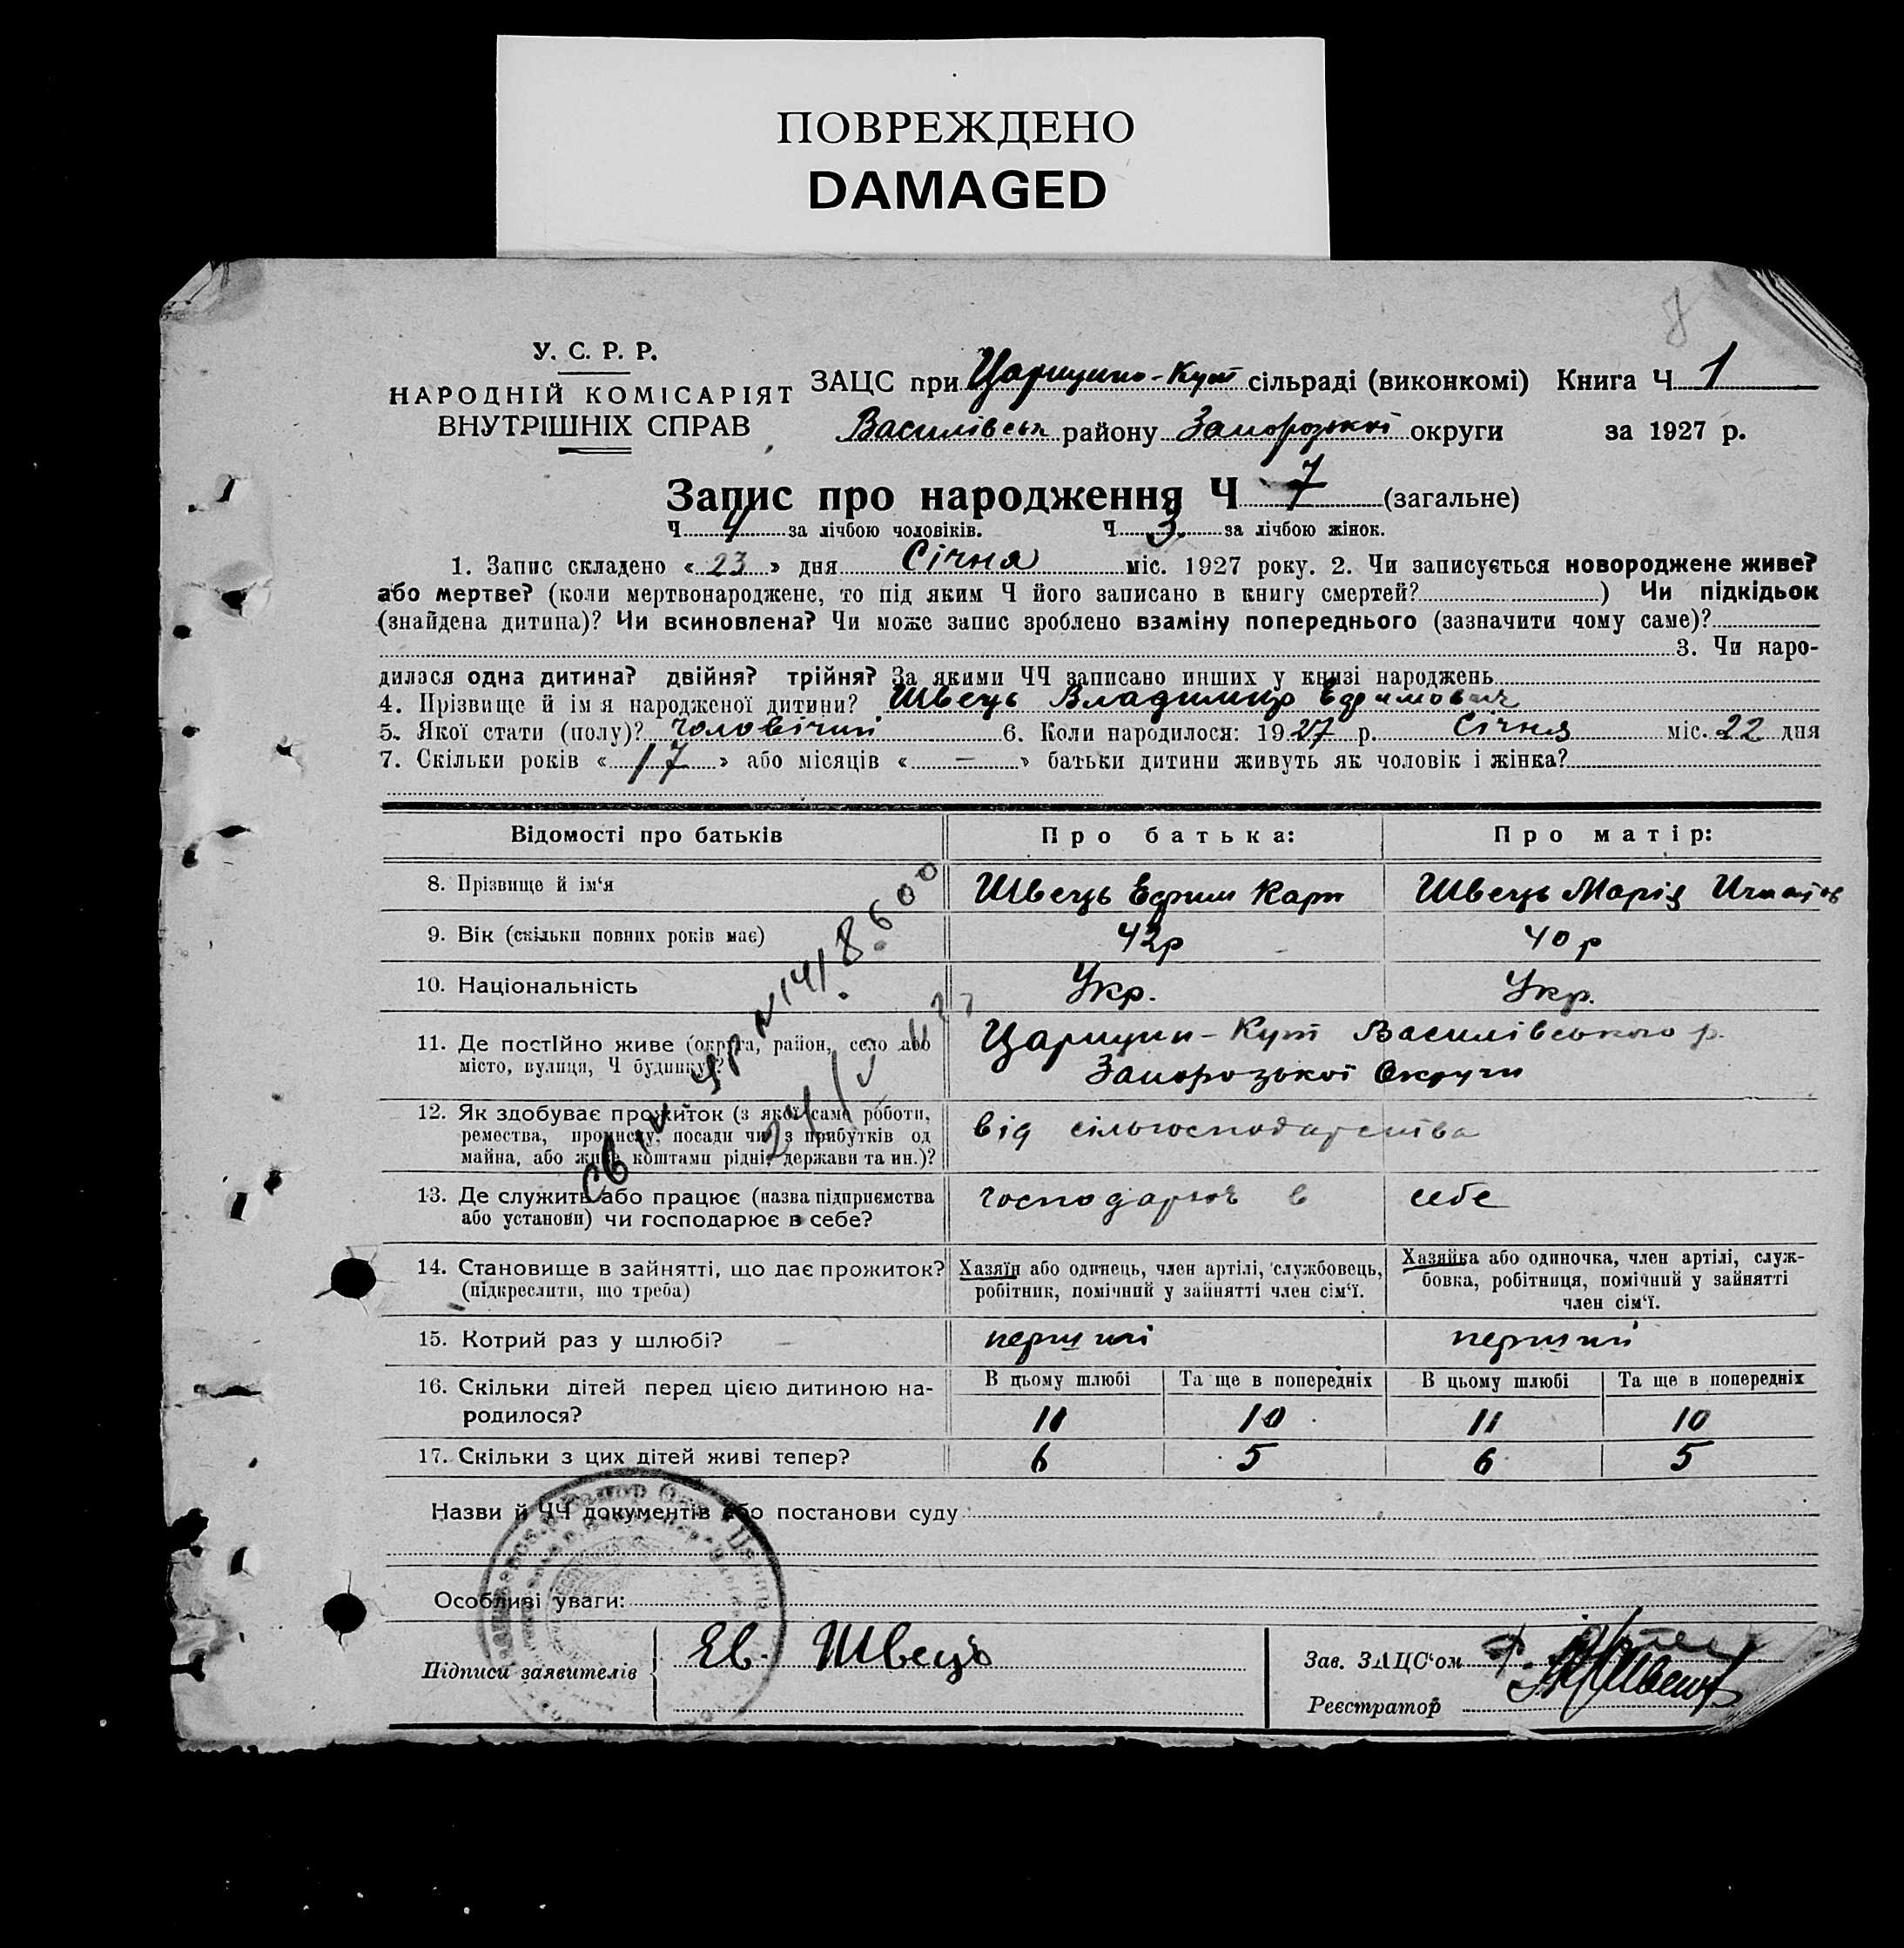 ПОВРЕЖДЕНО
DAMAGED
У. С. Р. Р.
НАРОДНІЙ КОМІСАРІЯТ
ВНУТРІШНІХ СПРАВ
ЗАЦС при Царицино-Кут сільраді (виконкомі) Книга Ч 1
Василівськ району Запорозької округи за 1927 р.
Запис про народження Ч 7 (загальне)
Ч 4 за лічбою чоловіків. Ч 3 за лічбою жінок.
1. Запис складено « 23 » дня Січня міс. 1927 року. 2. Чи записується новороджене живе?
або мертве? (коли мертвонароджене, то під яким Ч його записано в книгу смертей? ) Чи підкідьок
(знайдена дитина)? Чи всиновлена? Чи може запис зроблено взаміну попереднього (зазначити чому саме)?
3. Чи наро-
дилася одна дитина? двійня? трійня? За якими ЧЧ записано инших у книзі народжень
4. Прізвище й ім я народженої дитини? Швець Владимир Ефимович
5. Якої стати (полу)? Чоловічий 6. Коли народилося: 1927 р. Січня міс. 22 дня
7. Скільки років « 17 » або місяців « — » батьки дитини живуть як чоловік і жінка?
Відомості про батьків Про батька: Про матір:
8. Прізвище й ім‘я Швець Ефим Карп Швець Марія
9. Вік (скільки повних років має) 42р 40р
10. Національність Укр. Укр.
11. Де постійно живе (округа, район, село або
місто, вулиця, Ч будинку)?
Царицин-Кут Василівського р.
Запорозької Округи
12. Як здобуває прожиток (з якої саме роботи,
ремества, промислу, посади чи з прибутків од
майна, або живе коштами рідні, держави та ин.)?
від сільгосподарства
13. Де служить або працює (назва підприємства
або установи) чи господарює в себе?
господарює в себе
14. Становище в зайнятті, що дає прожиток?
(підкреслити, що треба)
Хазяїн або одинець, член артілі, службовець,
робітник, помічний у зайнятті член сім‘ї.
Хазяйка або одиночка, член артілі, служ-
бовка, робітниця, помічний у зайнятті
член сім‘ї.
15. Котрий раз у шлюбі? перший перший
16. Скільки дітей перед цією дитиною на-
родилося?
В цьому шлюбі Та ще в попередніх В цьому шлюбі Та ще в попередніх
11 10 11 10
17. Скільки з цих дітей живі тепер? 6 5 6 5
Назви й ЧЧ документів або постанови суду
Особливі уваги:
Підписи заявителів Єв. Швець
Зав. ЗАЦС‘ом
Реєстратор